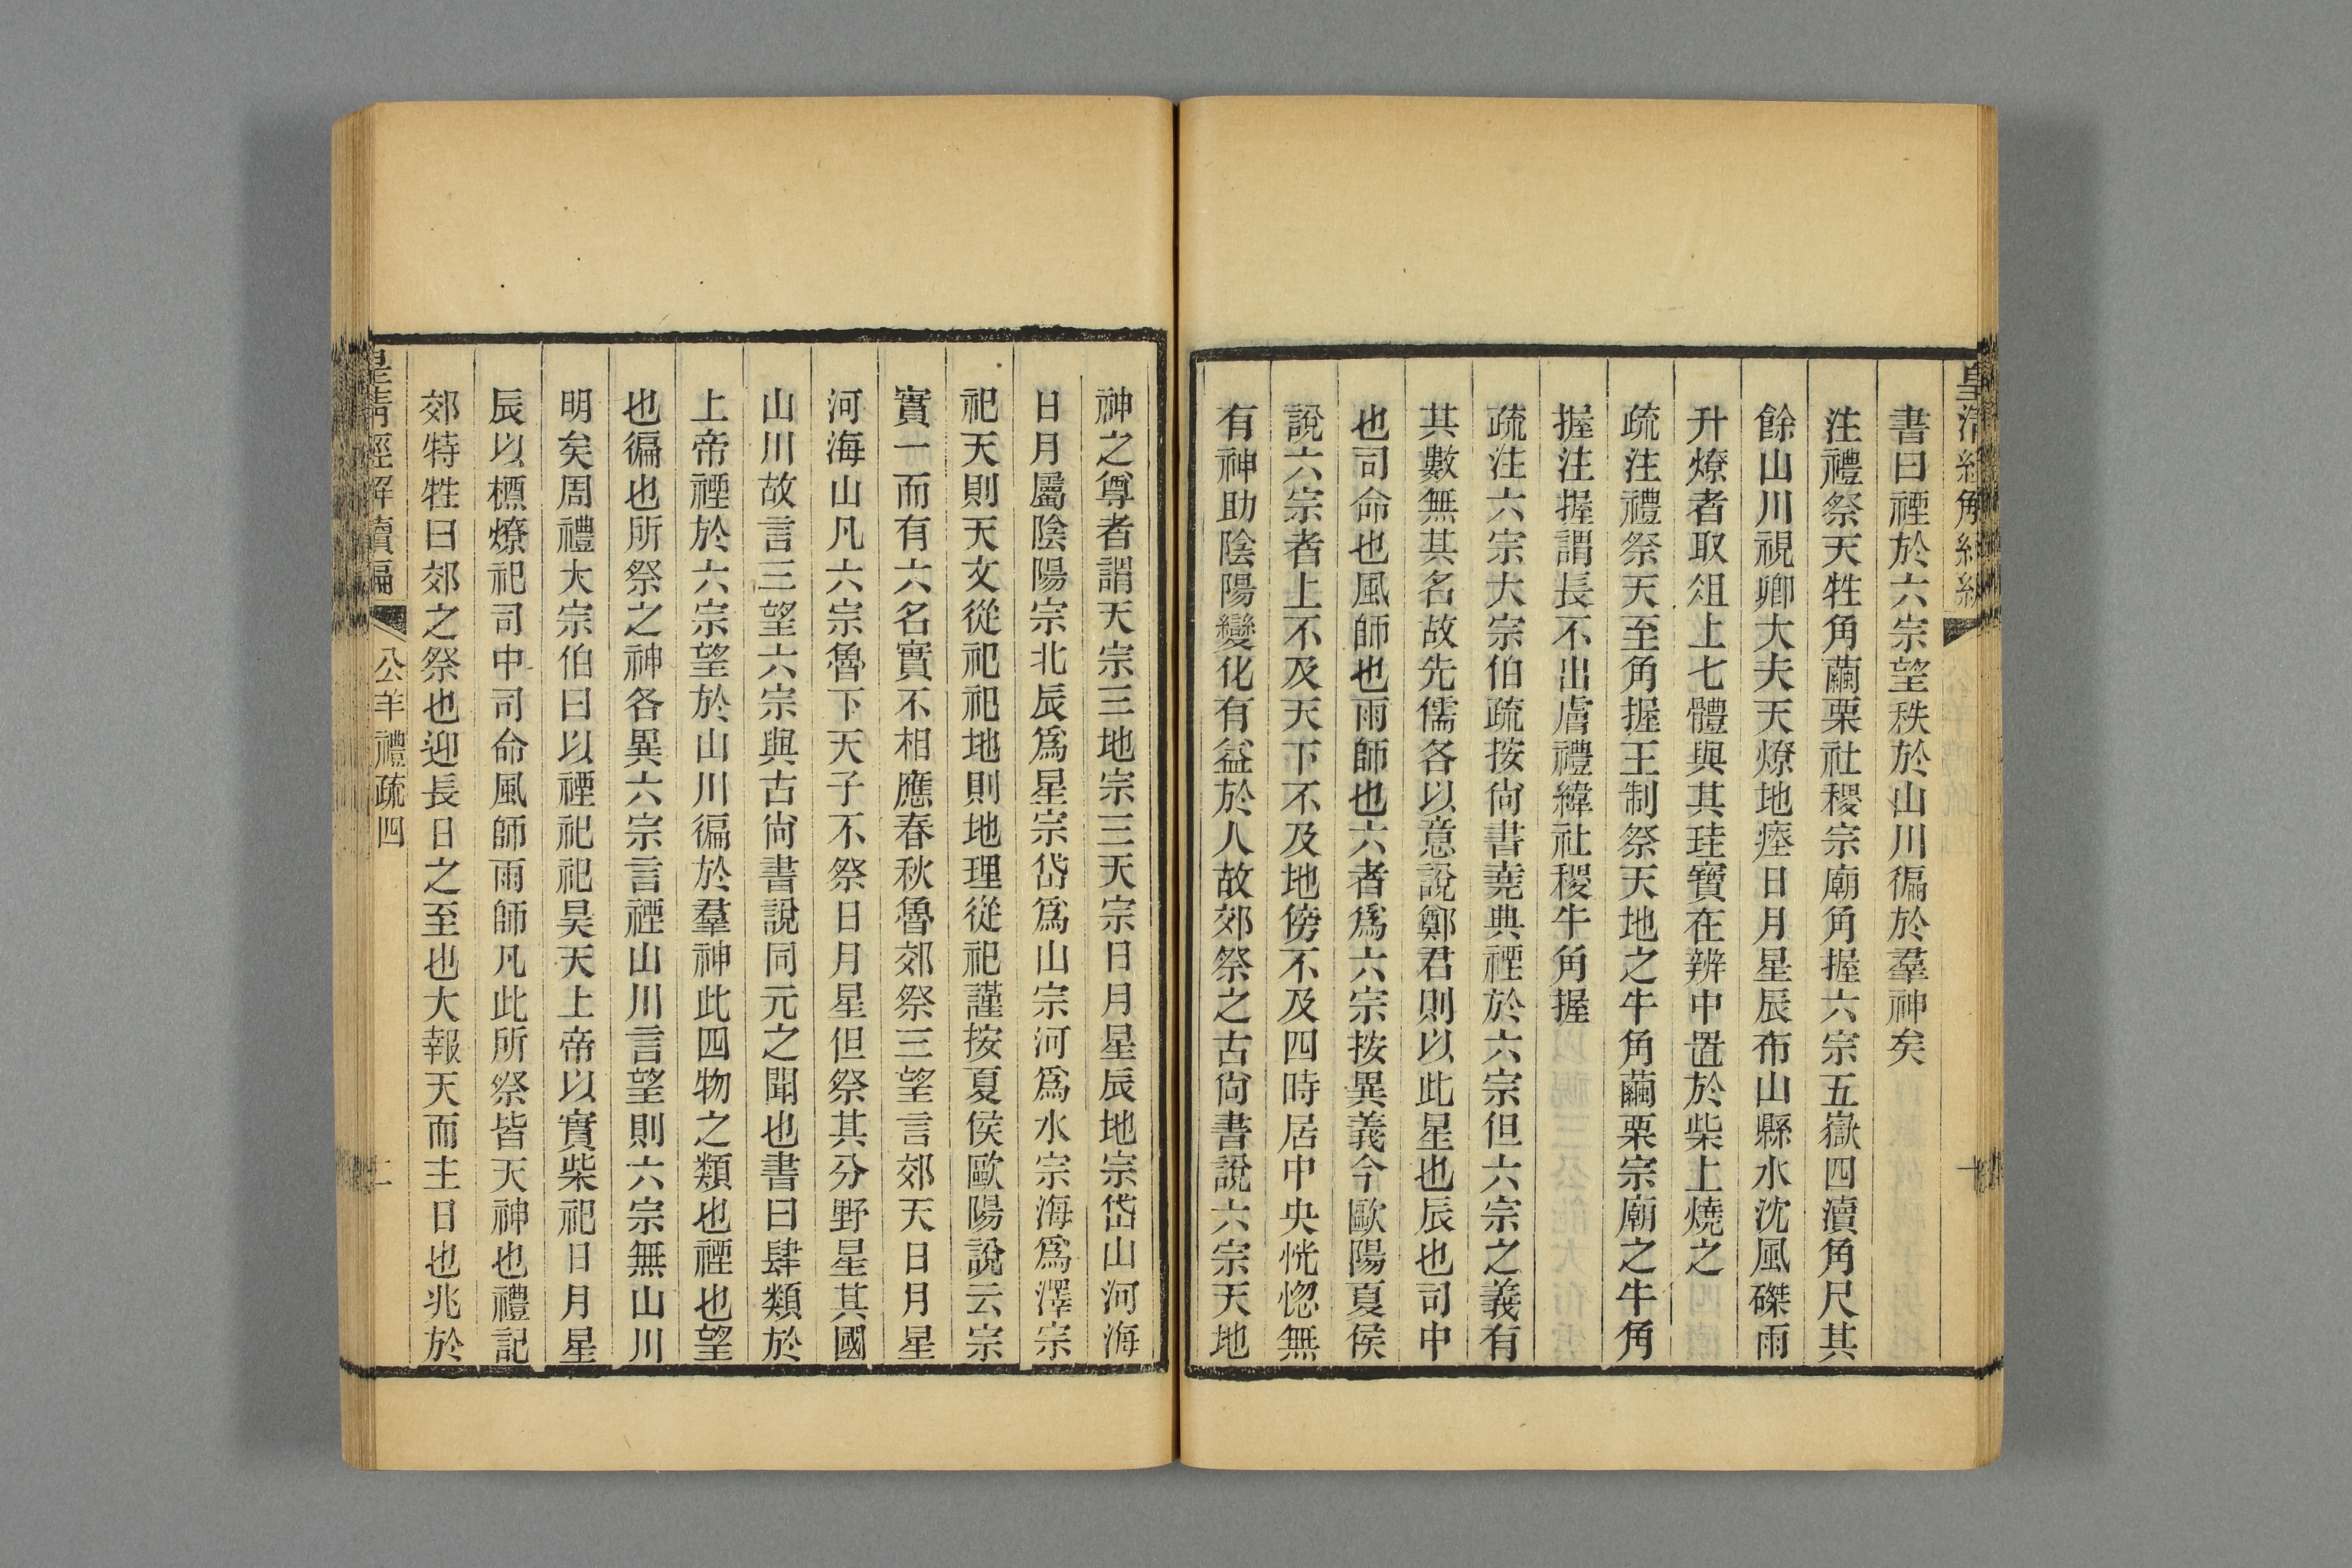 書曰禋於六宗望秩於山川徧於羣神矣
注禮祭天牲角繭栗社稷宗廟角握六宗五嶽四瀆角尺其
餘山川視卿大夫天燎地瘞日月星辰布山縣水沈風磔雨
升燎者取俎上七體與其珪寶在辨中置於柴上燒之
疏注禮祭天至角握王制祭天地之牛角繭栗宗廟之牛角
握注握謂長不出膚禮緯社稷牛角握
疏注六宗大宗伯疏按尙書堯典禋於六宗但六宗之義有
其數無其名故先儒各以意說鄭君則以此星也辰也司中
也司命也風師也雨師也六者爲六宗按異義今歐陽夏侯
說六宗者上不及天下不及地傍不及四時居中央恍惚無
有神助陰陽變化有益於人故郊祭之古尙書說六宗天地
神之尊者謂天宗三地宗三天宗日月星辰地宗岱山河海
日月屬陰陽宗北辰爲星宗岱爲山宗河爲水宗海爲澤宗
祀天則天文從祀祀地則地理從祀謹按夏侯歐陽說云宗
實一而有六名實不相應春秋魯郊祭三望言郊天日月星
河海山凡六宗魯下天子不祭日月星但祭其分野星其國
山川故言三望六宗與古尙書說同元之聞也書曰肆類於
上帝禋於六宗望於山川徧於羣神此四物之類也禋也望
也徧也所祭之神各異六宗言禋山川言望則六宗無山川
明矣周禮大宗伯曰以禋祀祀昊天上帝以實柴祀日月星
辰以槱燎祀司中司命風師雨師凡此所祭皆天神也禮記
郊特牲曰郊之祭也迎長日之至也大報天而主日也兆於
皇清經解續編 公羊禮疏四 二